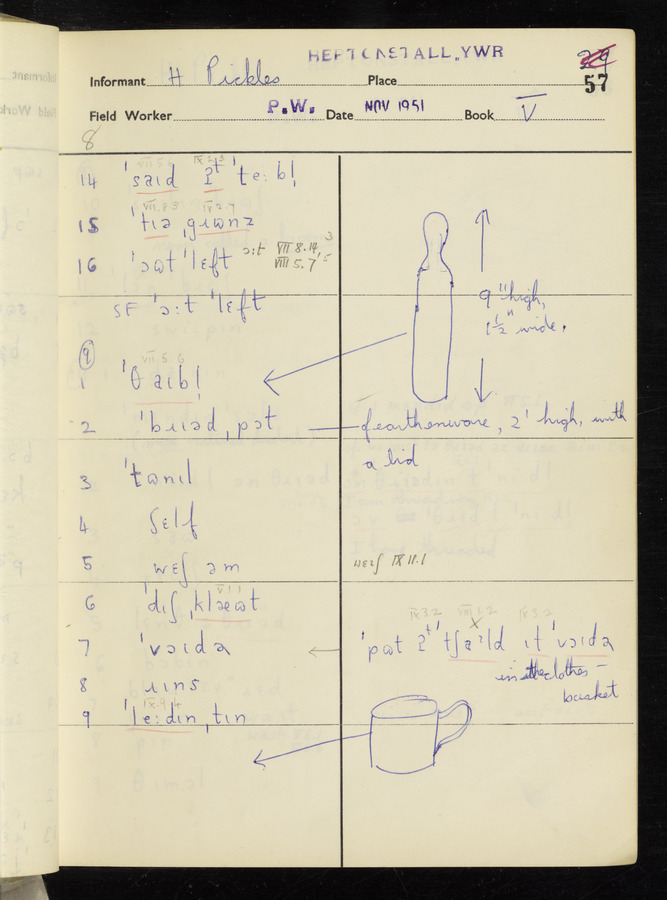 HEPTONSTALL, YWR
Informant H Pickles Place 29 57
Field Worker P.W. Date NOV 1951 Book V
8
VII.5.6 IX.2.3
14 ˈsaɪd ʔt ˈteːbl̩
VII.8.3 IX.2.7
15 ˈtɪə ˌɡɪʊnz
16 ˈɔʊt ˈlɛft ɔːt VII 8.14, 3
VIII 5.7, 5
SF ˈɔːt ˈlɛft
9" high,
1½" wide.
9
VII.5.6
1 ˈθaɪbl̩
2 ˈbɹɪəd ˌpɔt — of earthenware, 2' high, with
a lid
3 ˈtʊnɪl
4 ʃɛlf
5 ˌwɛʃ əm wɛɪʃ IX 11.1
V.1.1
6 ˈdɪʃ ˌklæʊt
IX.3.2 VIII.1.2 IX.3.2
7 ˈvɔɪdə ← ˈpʊt ʔt ˈtʃaɪld ɪt ˈvɔɪdə
in the clothes-
basket
8 ɹɪns
IX.9.4
9 ˈleːdɪn ˌtɪn